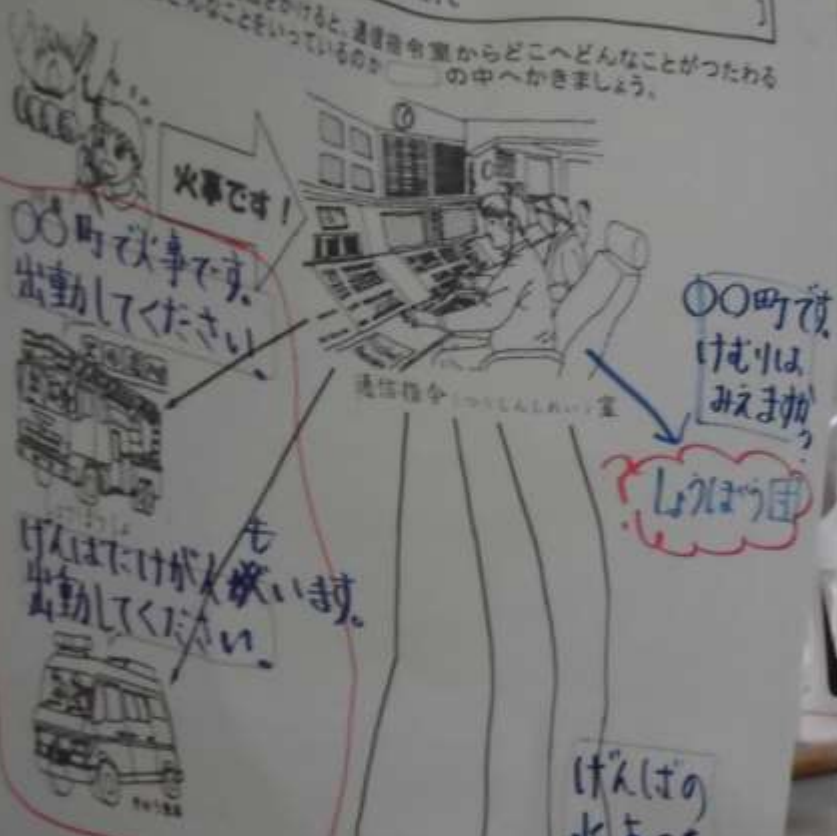 かけると、通信指令室からどこへどんなことがつたわる
んなことをいっているのか　　の中へかきましょう。
火事です！
〇〇町で火事です。
出動してください。
通信指令(つうしんしれい)室
〇〇町です。
けむりは
みえますか？
しょうぼう団
も
げんばにけが人がいます。
出動してください。
げんばの